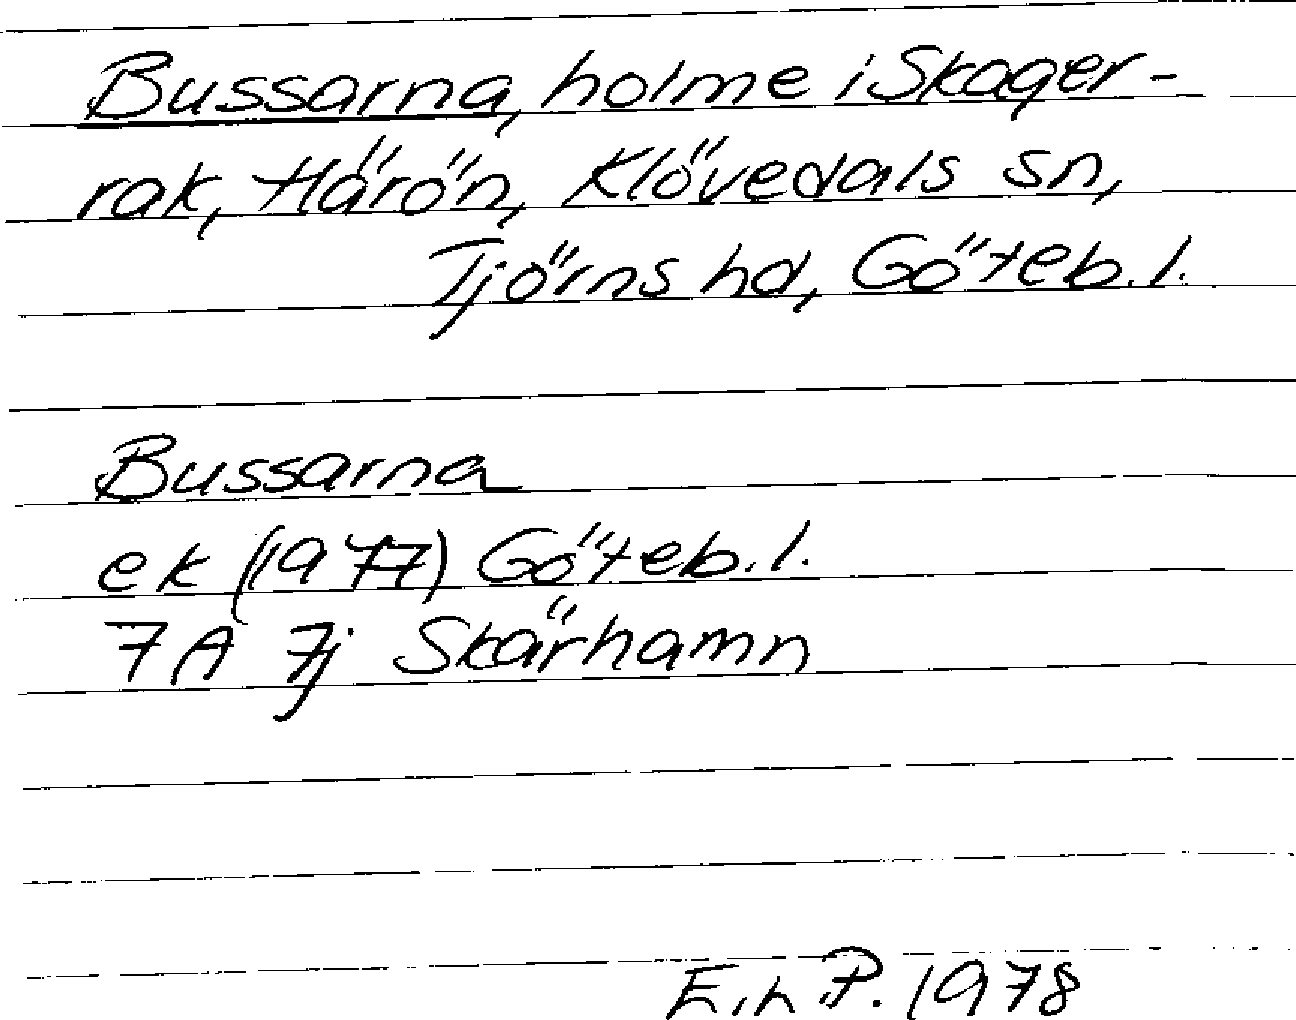 Bussarna, holme i Skager-
rak, Härön, Klövedals sn,
Tjörns hd, Göteb. l.
Bussarna
ek (1977) Göteb. l.
7A 7j Skärhamn
E.h P. 1978